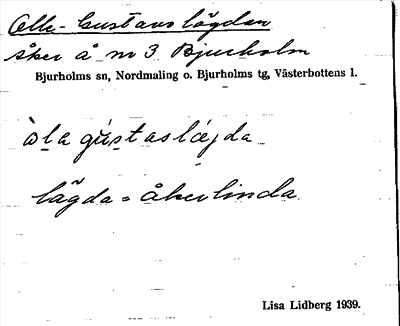 Olle-Gustavs lägdan
åker å nr 3 Bjurholm
Bjurholms sn, Nordmaling o. Bjurholms tg, Västerbottens l.
òla gústaslæjda
lägda = åkerlinda
Lisa Lidberg 1939.